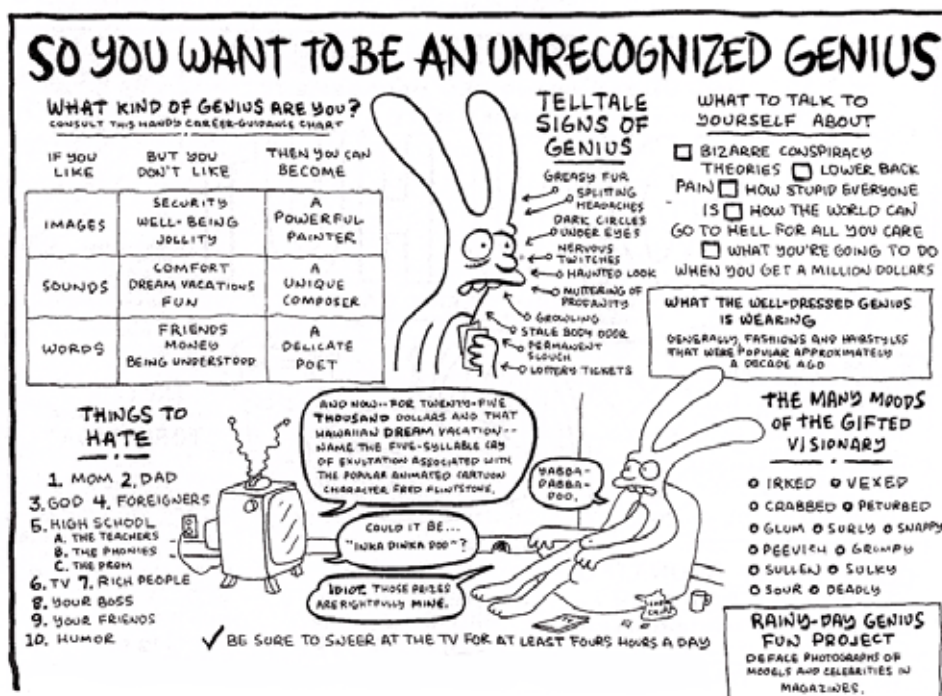 SO YOU WANT TO BE AN UNRECOGNIZED GENIUS
WHAT KIND OF GENIUS ARE YOU?
CONSULT THIS HANDY CAREER-GUIDANCE CHART
IF YOU LIKE
BUT YOU DON'T LIKE
THEN YOU CAN BECOME
IMAGES
SECURITY
WELL-BEING
JOLLITY
A
POWERFUL
PAINTER
SOUNDS
COMFORT
DREAM VACATIONS
FUN
A
UNIQUE
COMPOSER
WORDS
FRIENDS
MONEY
BEING UNDERSTOOD
A
DELICATE
POET
TELLTALE
SIGNS OF
GENIUS
GREASY FUR
SPLITTING
HEADACHES
DARK CIRCLES
UNDER EYES
NERVOUS
TWITCHES
HAUNTED LOOK
MUTTERING OF
PROFANITY
GROWLING
STALE BODY ODOR
PERMANENT
SLOUCH
LOTTERY TICKETS
WHAT TO TALK TO
YOURSELF ABOUT
BIZARRE CONSPIRACY
THEORIES LOWER BACK
PAIN HOW STUPID EVERYONE
IS HOW THE WORLD CAN
GO TO HELL FOR ALL YOU CARE
WHAT YOU'RE GOING TO DO
WHEN YOU GET A MILLION DOLLARS
WHAT THE WELL-DRESSED GENIUS
IS WEARING
GENERALLY, FASHIONS AND HAIRSTYLES
THAT WERE POPULAR APPROXIMATELY
A DECADE AGO
THINGS TO
HATE
1. MOM 2. DAD
3. GOD 4. FOREIGNERS
5. HIGH SCHOOL
A. THE TEACHERS
B. THE PHONIES
C. THE PROM
6. TV 7. RICH PEOPLE
8. YOUR BOSS
9. YOUR FRIENDS
10. HUMOR
AND NOW--FOR TWENTY-FIVE
THOUSAND DOLLARS AND THAT
HAWAIIAN DREAM VACATION--
NAME THE FIVE-SYLLABLE CRY
OF EXULTATION ASSOCIATED WITH
THE POPULAR ANIMATED CARTOON
CHARACTER FRED FLINTSTONE.
YABBA-
DABBA-
DOO.
COULD IT BE...
"INKA DINKA DOO"?
IDIOT. THOSE PRIZES
ARE RIGHTFULLY MINE.
✓ BE SURE TO SNEER AT THE TV FOR AT LEAST FOURS HOURS A DAY
THE MANY MOODS
OF THE GIFTED
VISIONARY
IRKED VEXED
CRABBED PETURBED
GLUM SURLY SNAPPY
PEEVISH GRUMPY
SULLEN SULKY
SOUR DEADLY
RAINY-DAY GENIUS
FUN PROJECT
DEFACE PHOTOGRAPHS OF
MODELS AND CELEBRITIES IN
MAGAZINES.